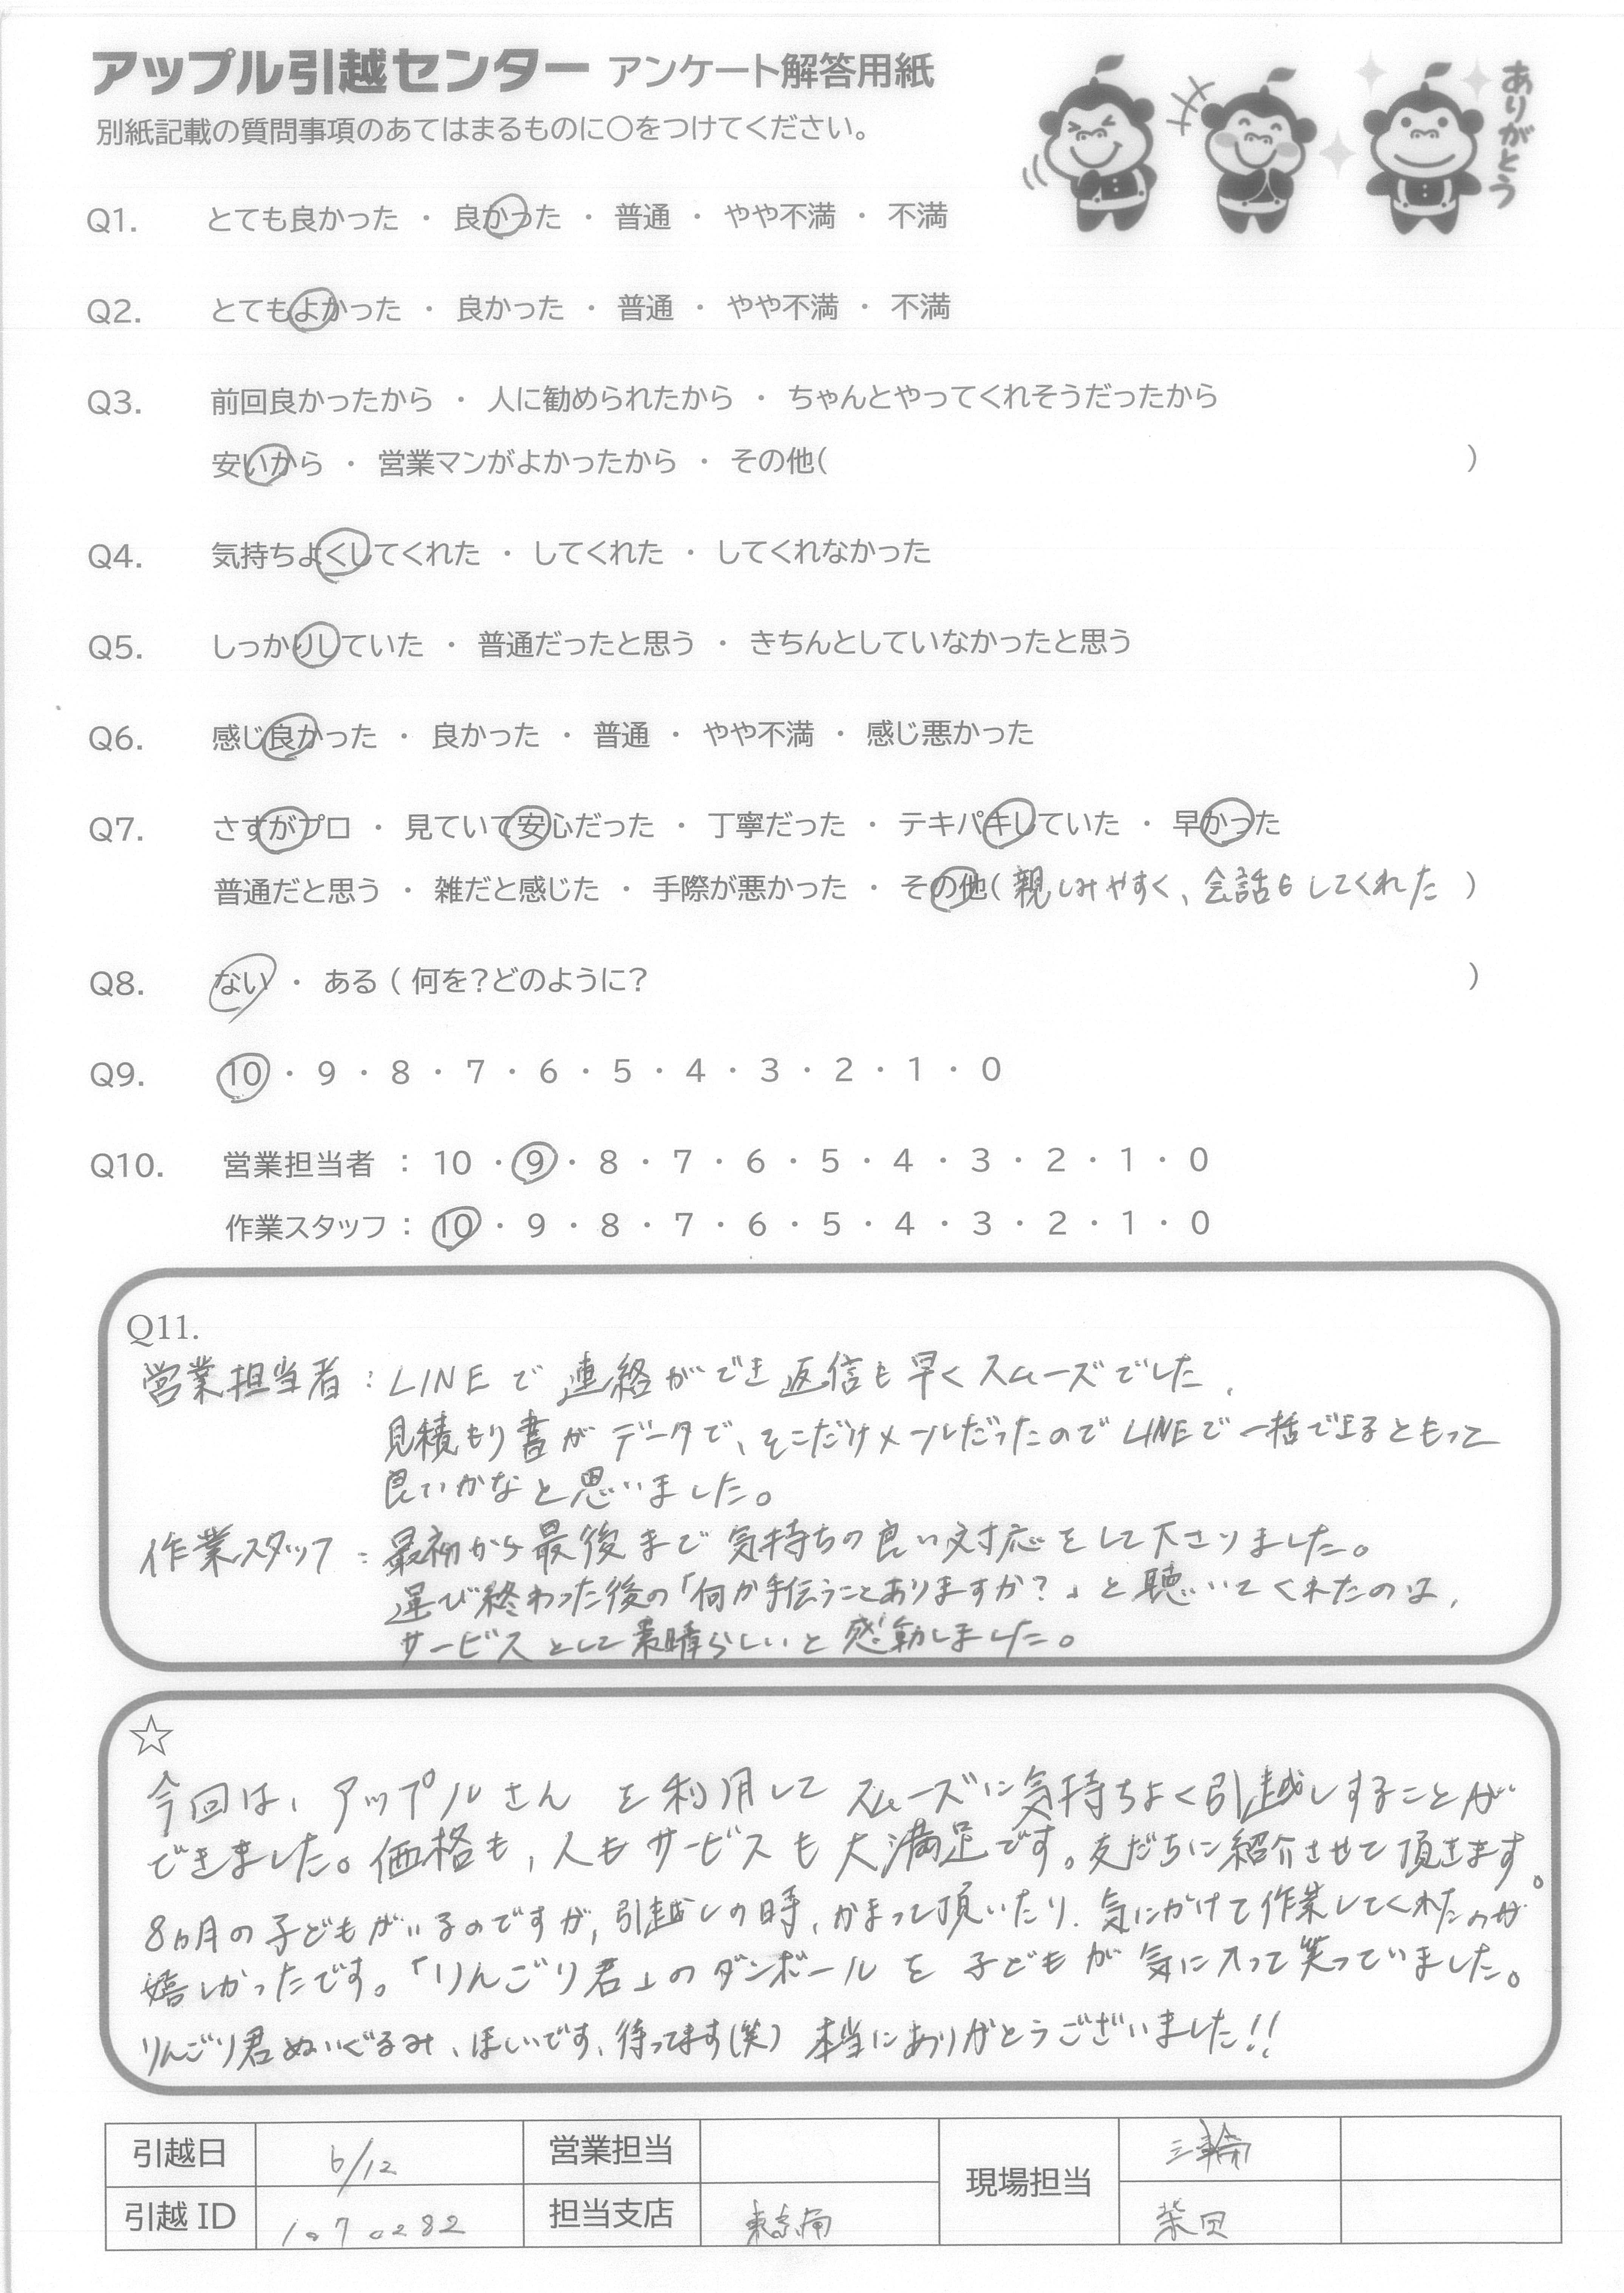 アップル引越センター アンケート解答用紙
ありがとう
別紙記載の質問事項のあてはまるものに○をつけてください。
Q1. とても良かった ・ 良かった ・ 普通 ・ やや不満 ・ 不満
Q2. とてもよかった ・ 良かった ・ 普通 ・ やや不満 ・ 不満
Q3. 前回良かったから ・ 人に勧められたから ・ ちゃんとやってくれそうだったから
安いから ・ 営業マンがよかったから ・ その他( )
Q4. 気持ちよくしてくれた ・ してくれた ・ してくれなかった
Q5. しっかりしていた ・ 普通だったと思う ・ きちんとしていなかったと思う
Q6. 感じ良かった ・ 良かった ・ 普通 ・ やや不満 ・ 感じ悪かった
Q7. さすがプロ ・ 見ていて安心だった ・ 丁寧だった ・ テキパキしていた ・ 早かった
普通だと思う ・ 雑だと感じた ・ 手際が悪かった ・ その他( 親しみやすく、会話もしてくれた )
Q8. ない ・ ある ( 何を?どのように? )
Q9. 10 ・ 9 ・ 8 ・ 7 ・ 6 ・ 5 ・ 4 ・ 3 ・ 2 ・ 1 ・ 0
Q10. 営業担当者 : 10 ・ 9 ・ 8 ・ 7 ・ 6 ・ 5 ・ 4 ・ 3 ・ 2 ・ 1 ・ 0
作業スタッフ : 10 ・ 9 ・ 8 ・ 7 ・ 6 ・ 5 ・ 4 ・ 3 ・ 2 ・ 1 ・ 0
Q11.
営業担当者 : LINEで連絡ができ返信も早くスムーズでした、
見積もり書がデータで、そこだけメールだったのでLINEで一括できるともって
良いかなと思いました。
作業スタッフ : 最初から最後まで気持ちの良い対応をして下さりました。
運び終わった後の「何か手伝うことありますか?」と聴いてくれたのは、
サービスとして素晴らしいと感動しました。
☆
今回は、アップルさんを利用してスムーズに気持ちよく引越しすることが
できました。価格も、人もサービスも大満足です。友だちに紹介させて頂きます。
8ヵ月の子どもがいるのですが、引越しの時、かまって頂いたり、気にかけて作業してくれたのが
嬉しかったです。「りんごり君」のダンボールを子どもが気に入って笑っていました。
りんごり君ぬいぐるみ、ほしいです、待ってます(笑) 本当にありがとうございました!!
引越日 6/12 営業担当 現場担当 三輪
引越ID 1070282 担当支店 東京南 柴田